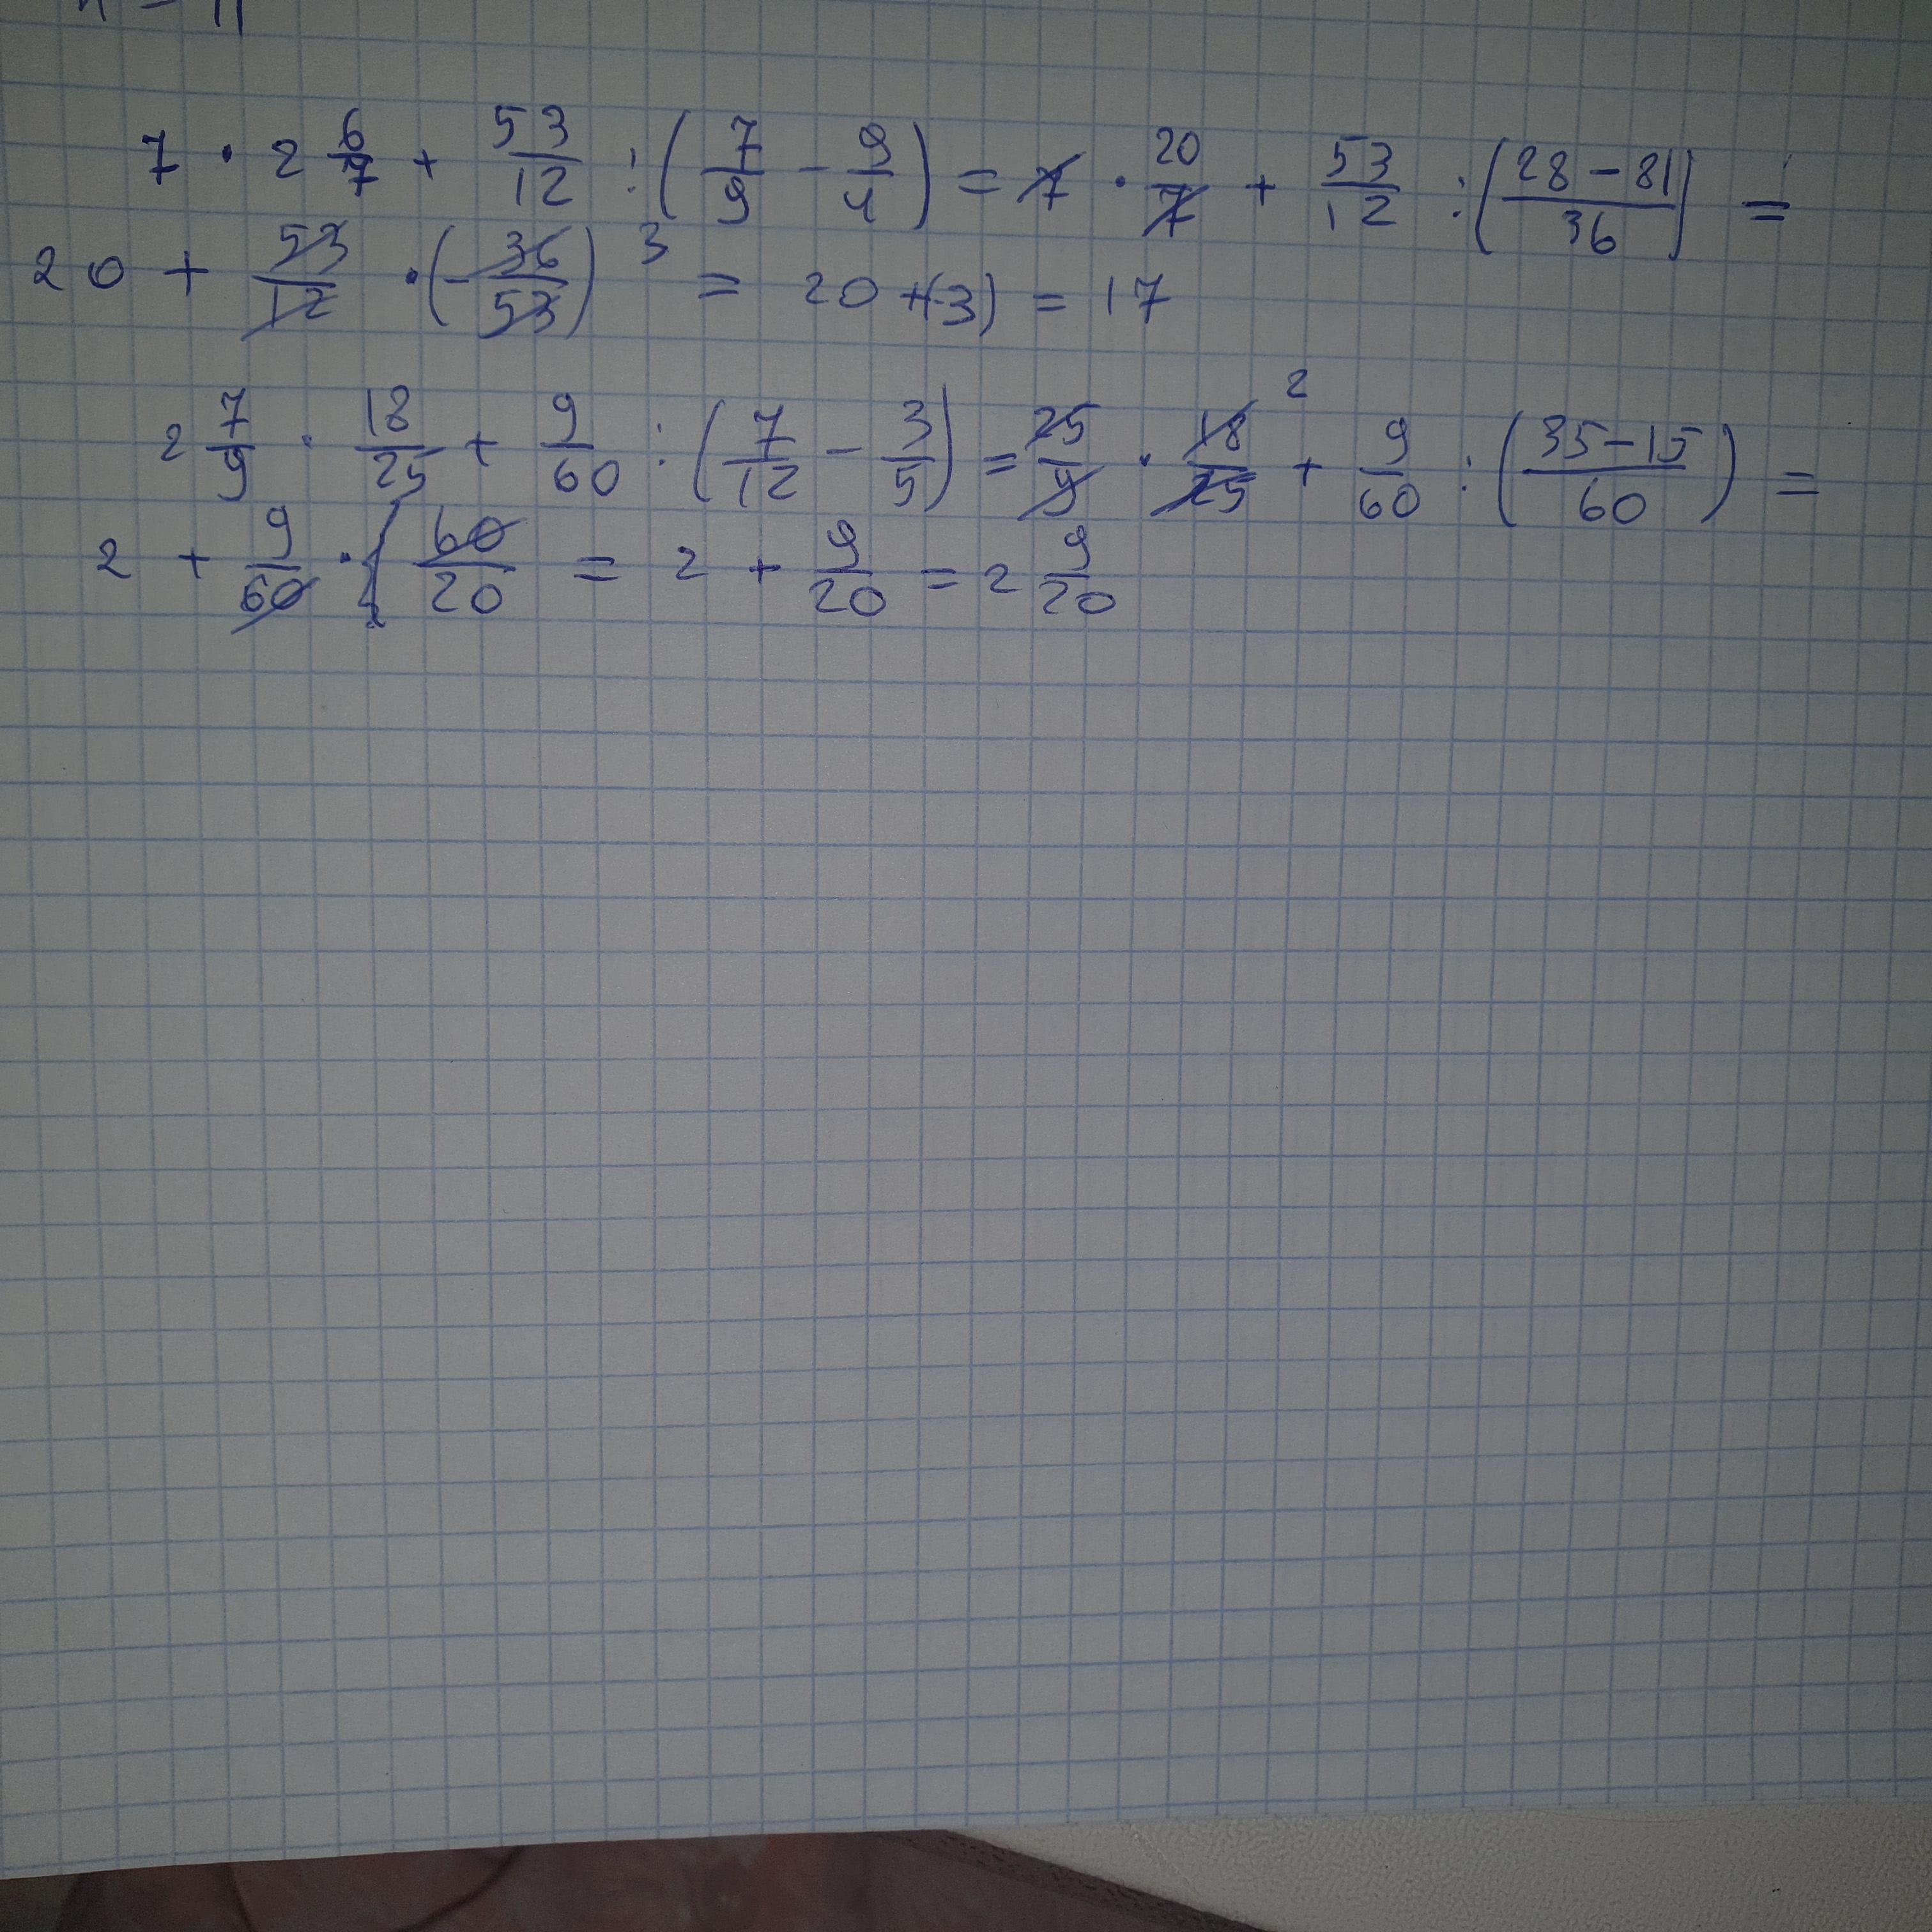 7 · 2 6/7 + 53/12 : (7/9 − 9/4) = 7 · 20/7 + 53/12 : (28 − 81/36) =
20 + 53/12 · (−36/53) 3 = 20 +(−3) = 17
2 7/9 · 18/25 + 9/60 : (7/12 − 3/5) = 25/9 · 18/25 2 + 9/60 : (35 − 15/60) =
2 + 9/60 · 60/20 = 2 + 9/20 = 2 9/20